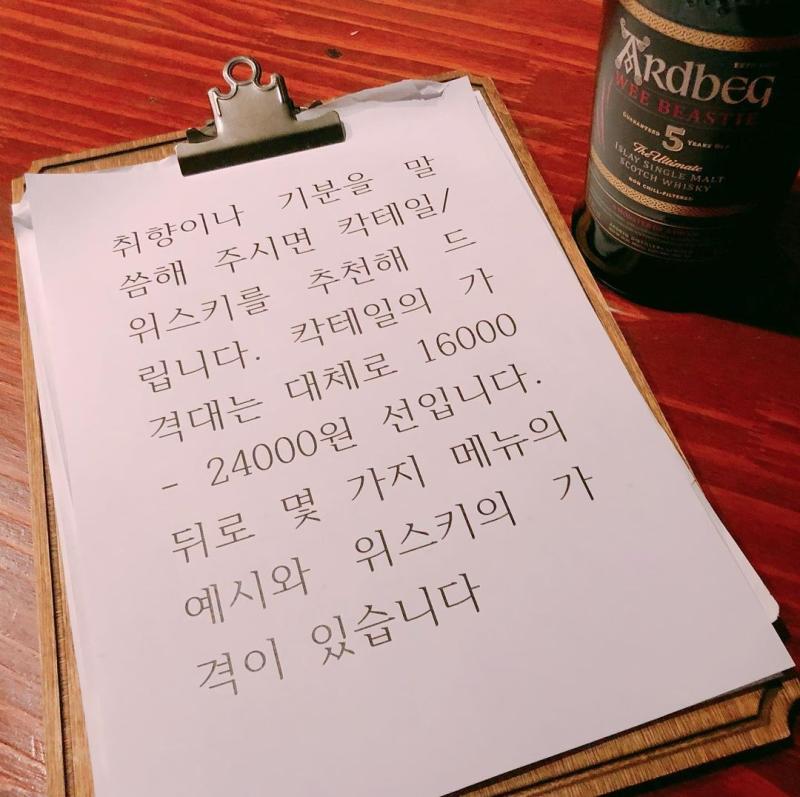 취향이나 기분을 말
씀해 주시면 칵테일/
위스키를 추천해 드
립니다. 칵테일의 가
격대는 대체로 16000
- 24000원 선입니다.
뒤로 몇 가지 메뉴의
예시와 위스키의 가
격이 있습니다
ARDBEG
WEE BEASTIE
GUARANTEED 5 YEARS OLD
The Ultimate
ISLAY SINGLE MALT
SCOTCH WHISKY
NON CHILL-FILTERED